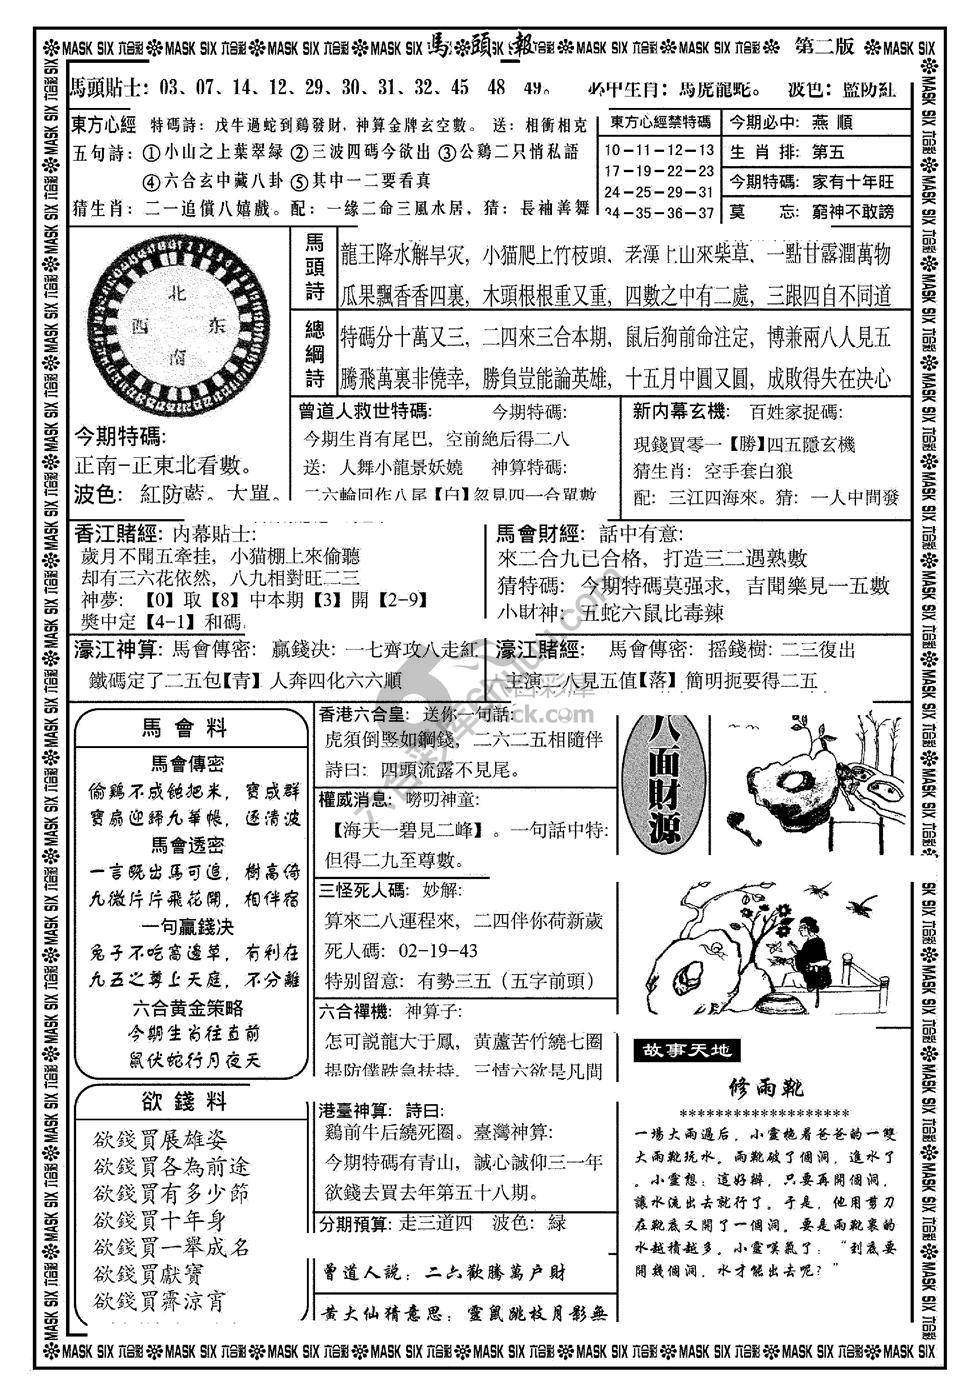 MASK SIX 六合彩 MASK SIX 六合彩 MASK SIX 六合彩 馬頭報 六合彩 MASK SIX 六合彩 MASK SIX 六合彩 第二版 MASK SIX
馬頭貼士：03、07、14、12、29、30、31、32、45 48 49。 必中生肖：馬虎龍蛇。 波色：藍防紅
東方心經 特碼詩：戊牛過蛇到鷄發財，神算金牌玄空數。 送：相衝相克
五句詩：①小山之上葉翠緑 ②三波四碼今欲出 ③公鷄二只悄私語
④六合玄中藏八卦 ⑤其中一二要看真
猜生肖：二一追償八嬉戲。配：一緣二命三風水居，猜：長袖善舞
東方心經禁特碼
10-11-12-13
17-19-22-23
24-25-29-31
34-35-36-37
今期必中：燕順
生肖排：第五
今期特碼：家有十年旺
莫 忘：窮神不敢謗
北
西 东
南
今期特碼：
正南-正東北看數。
波色：紅防藍。大單。
馬頭詩
龍王降水解旱灾，小猫爬上竹枝頭、老漢上山來柴草、一點甘露潤萬物
瓜果飄香香四裏，木頭根根重又重，四數之中有二處，三跟四自不同道
總綱詩
特碼分十萬又三，二四來三合本期，鼠后狗前命注定，博兼兩八人見五
騰飛萬裏非僥幸，勝負豈能論英雄，十五月中圓又圓，成敗得失在决心
曾道人救世特碼： 今期特碼：
今期生肖有尾巴，空前絶后得二八
送：人舞小龍景妖嬈 神算特碼：
二六輪回作八尾【白】忽見四一合單數
新内幕玄機：百姓家捉碼：
現錢買零一【勝】四五隱玄機
猜生肖：空手套白狼
配：三江四海來。猜：一人中間發
香江賭經：内幕貼士：
歲月不聞五牽挂，小猫棚上來偷聽
却有三六花依然，八九相對旺二三
神夢：【0】取【8】中本期【3】開【2-9】
獎中定【4-1】和碼
馬會財經：話中有意：
來二合九已合格，打造三二遇熟數
猜特碼：今期特碼莫强求，吉聞樂見一五數
小財神：五蛇六鼠比毒辣
濠江神算：馬會傳密：贏錢决：一七齊攻八走紅
鐵碼定了二五包【青】人奔四化六六順
濠江賭經： 馬會傳密：摇錢樹：二三復出
主演二八見五值【落】簡明扼要得二五
馬會料
馬會傳密
偷鷄不成蝕把米，寶成群
寶扇迎歸九華帳，逐清波
馬會透密
一言既出馬可追，樹高倚
九微片片飛花開，相伴宿
一句贏錢决
兔子不吃窩邊草，有利在
九五之尊上天庭，不分離
六合黄金策略
今期生肖往直前
鼠伏蛇行月夜天
欲錢料
欲錢買展雄姿
欲錢買各為前途
欲錢買有多少節
欲錢買十年身
欲錢買一舉成名
欲錢買獻寶
欲錢買霽涼宵
香港六合皇：送你一句話：
虎須倒竪如鋼錢，二六二五相隨伴
詩曰：四頭流露不見尾。
權威消息：嘮叨神童：
【海天一碧見二峰】。一句話中特：
但得二九至尊數。
三怪死人碼：妙解：
算來二八運程來，二四伴你荷新歲
死人碼：02-19-43
特别留意：有勢三五（五字前頭）
六合禪機：神算子：
怎可説龍大于鳳，黄蘆苦竹繞七圈
提防僕跌急扶持，三情六欲是凡間
港臺神算：詩曰：
鷄前牛后繞死圈。臺灣神算：
今期特碼有青山，誠心誠仰三一年
欲錢去買去年第五十八期。
分期預算：走三道四 波色：緑
曾道人説：二六歡騰萬户財
黄大仙猜意思：靈鼠跳枝月影無
八面財源
故事天地
修雨靴
*******************
一場大雨過后，小靈拖着爸爸的一雙
大雨靴玩水。雨靴破了個洞，進水了
。小靈想：這好辦，只要再開個洞，
讓水流出去就行了。于是，他用剪刀
在靴底又開了一個洞。要是雨靴裏的
水越積越多。小靈嘆氣了：“到底要
開幾個洞，水才能出去呢？”
MASK SIX 六合彩 MASK SIX 六合彩 MASK SIX 六合彩 MASK SIX 六合彩 MASK SIX 六合彩 MASK SIX 六合彩 MASK SIX 六合彩 MASK SIX 六合彩 MASK SIX